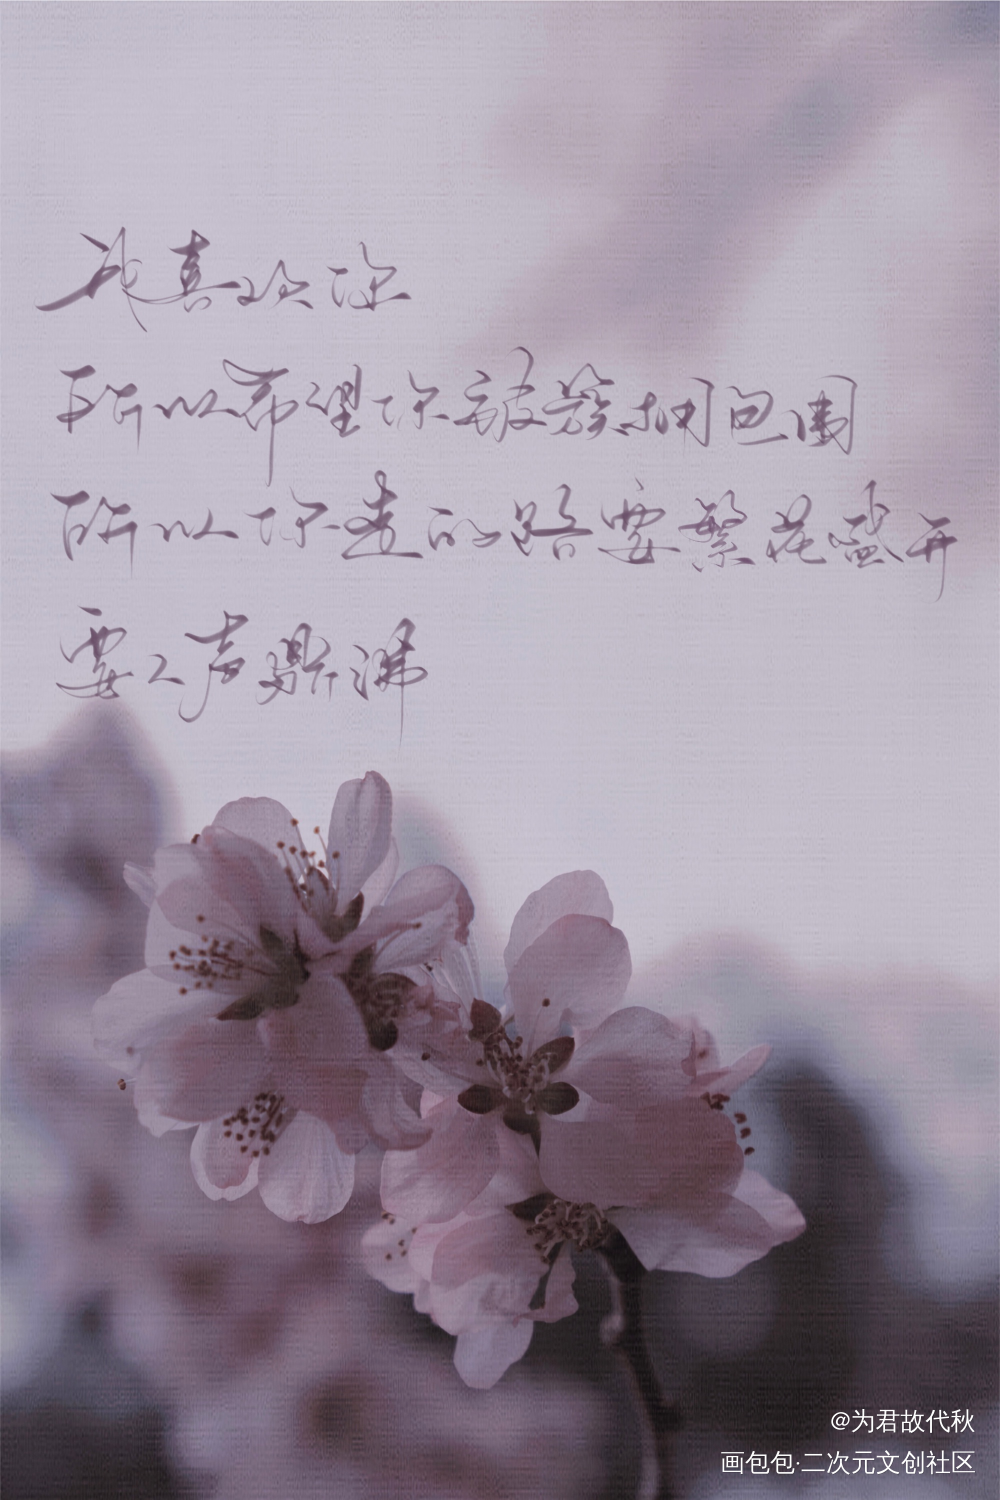 我喜欢你
所以希望你被簇拥包围
所以你走的路要繁花盛开
要人声鼎沸
@为君故代秋
画包包·二次元文创社区